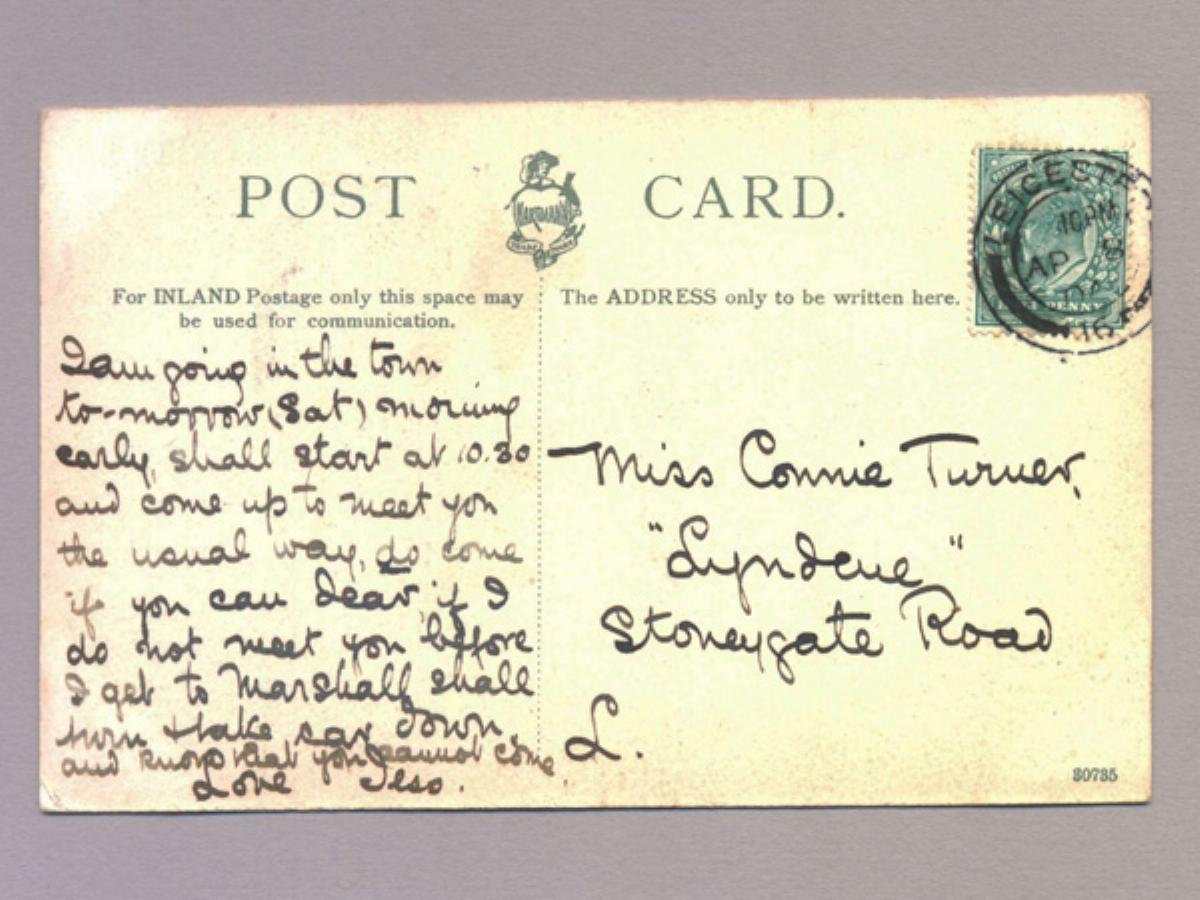 POST CARD.
HARTMANN
TRADE MARK
For INLAND Postage only this space may
be used for communication.
The ADDRESS only to be written here.
LEICESTER
10 PM
AP 8
16
PENNY
I am going in the town
to-morrow (Sat) morning
early, shall start at 10.30
and come up to meet you
the usual way, do come
if you can dear, if I
do not meet you before
I get to Marshalls shall
turn + take car down,
and know that you cannot come
Love
Miss Connie Turner,
"Lyndene"
Stoneygate Road
L.
30735